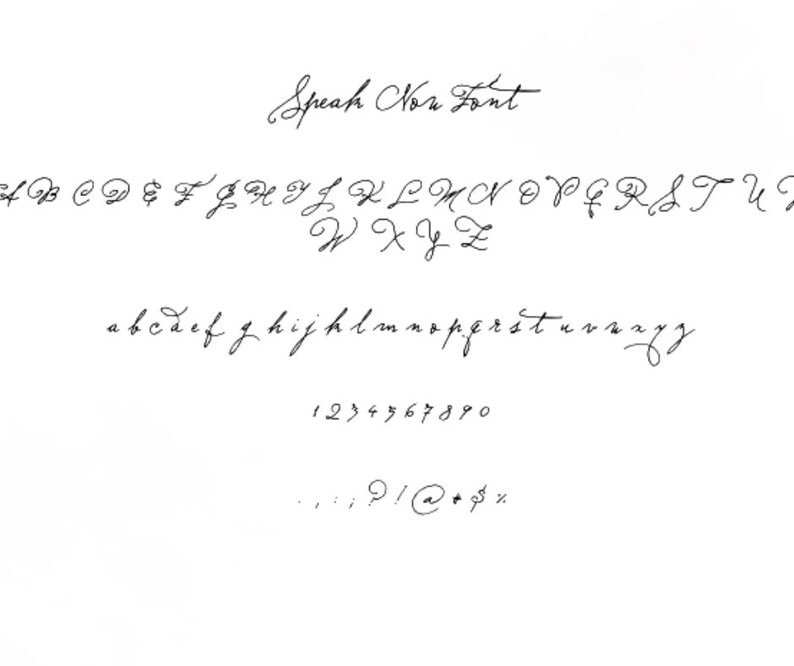 Speak Now Font
A B C D E F G H I J K L M N O P Q R S T U V
W X Y Z
a b c d e f g h i j k l m n o p q r s t u v w x y z
1 2 3 4 5 6 7 8 9 0
. , : ; ? ! @ * $ %